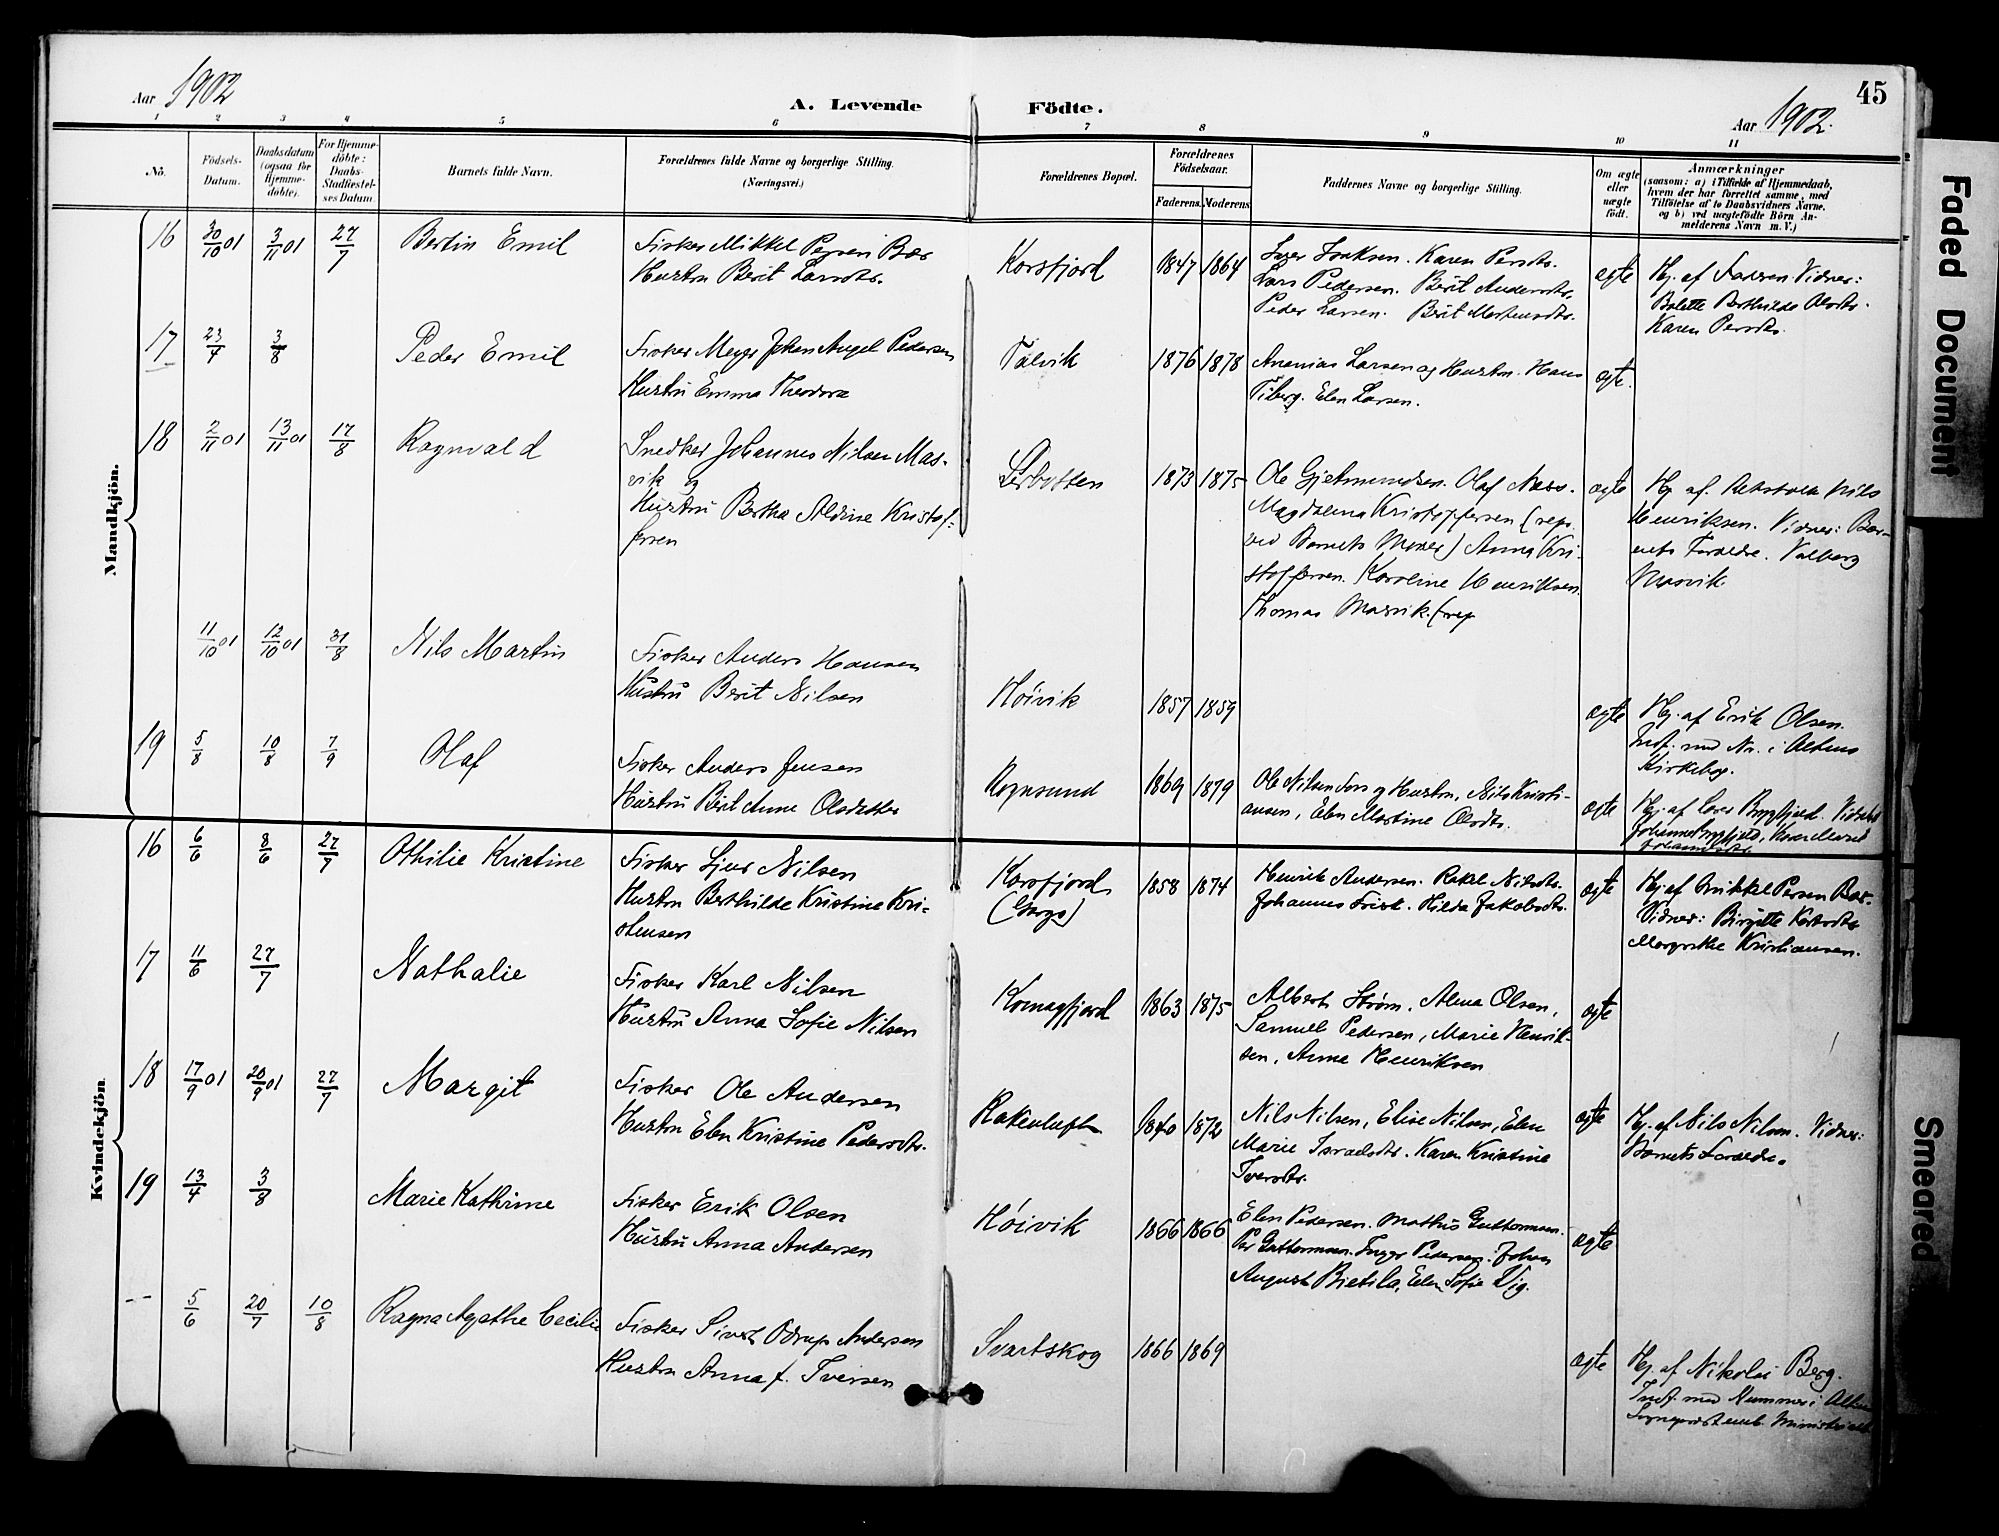 Aar 1902
A. Levende Födte.
Aar 1902.
45
1 2 3 4 5 6 7 8 9 10 11
Nö.
Födsels-Datum.
Daabsdatum (ogsaa for Hjemmedöbte).
For Hjemmedöbte: Daabs-Stadfæstelses Datum.
Barnets fulde Navn.
Forældrenes fulde Navne og borgerlige Stilling. (Næringsvei.)
Forældrenes Bopæl.
Forældrenes Födselsaar.
Faderens. Moderens.
Faddernes Navne og borgerlige Stilling.
Om ægte eller uægte födt.
Anmærkninger
(saasom: a) i Tilfælde af Hjemmedaab,
hvem der har forrettet samme, med
Tilföielse af to Daabsvidners Navne.
og b) ved uægtefödte Börn An-
melderens Navn m. V.)
Mandkjön.
16 30/10 01 3/11 01 27/7 Bertin Emil
Fisker Mikkel Persen Bær
Hustru Berit Larsdtr.
Korsfjord 1847 1864
Karen Persdtr.
Lars Pedersen. Berit Andersdtr.
Peder Larsen. Berit Mortensdtr.
ægte
Hj. af Faderen Vidner:
Bolette Berthilde Olsdtr.
Karen Persdtr.
17 23/4 3/8 Peder Emil
Fisker Meyer Johan Angel Pedersen
Hustru Emma Theodora
Talvik 1876 1878
Ananias Larsen og Hustru. Hans
Tiberg. Elen Larsen.
ægte.
18 2/11 01 13/11 01 17/8 Ragnvald
Snedker Johannes Nilsen Mas-
vik og
Hustru Bertha Aldine Kristof-
fersen
Lerbotten 1873 1875
Ole Gjetmundsen. Olaf Næss.
Magdalena Kristoffersen (repr.
ved Barnets Moder) Anna Kri-
stoffersen. Karoline Henriksen.
Thomas Masvik. (rep
ægte
Hj. af. Nils
Henriksen. Vidner: Bar-
nets Forældre. Valborg
Masvik.
11/10 01 12/10 01 31/8 Nils Martin
Fisker Anders Hansen
Hustru Berit Nilsen
Høivik 1857 1859
ægte
Hj. af Erik Olsen.
Indf. med No. i Altens
Kirkebog.
19 5/8 10/8 7/9 Olaf
Fisker Anders Jensen
Hustru Berit Anne Olsdatter
Rognsund 1869 1879
Ole Nilsen Fors og Hustru, Nils Kristi-
ansen, Elen Martine Olsdtr.
ægte
Kvindekjön.
16 6/6 8/6 27/7 Othilie Kristine
Fisker Sjur Nilsen
Hustru Berthilde Kristine Kri-
stensen
Korsfjord
(Gargo)
1858 1874
Henrik Andersen. Rakel Nilsdtr.
Johannes Frisk. Hilda Jakobsdtr.
ægte
Hj. af Mikkel Persen Bær.
Vidner: Birgitte
Margrethe Kristiansen.
17 11/6 27/7 Nathalie
Fisker Karl Nilsen
Hustru Anna Sofie Nilsen
Komagfjord 1863 1875
Albert Strøm, Alma Olsen,
Samuel Pedersen, Marie Henrik-
sen, Anna Henriksen
ægte
18 17/9 01 20/9 01 27/7 Margit
Fisker Ole Andersen
Hustru Elen Kristine Pedersdtr.
1840 1872
Nils Nilsen, Elise Nilsen, Elen
Marie Israelsdtr. Karen Kristine
Iversdtr.
ægte
Hj. af Nils Nilsen. Vidner:
Barnets Forældre.
19 13/4 3/8 Marie Kathrine
Fisker Erik Olsen
Hustru Anna Andersen
Høivik 1866 1866
Elen Pedersen. Mathis Guttormsen.
Per Guttormsen. Inger Pedersen. Johan
August Bietila, Elen Sofie Vig.
ægte
-- 5/6 20/7 10/8 Ragna Agathe Cecilie
Fisker Sivert Odrup Andersen
Hustru Anna f. Iversen
Svartskog 1866 1869
ægte
Hj. af Nikolai Berg.
Indf. med Nummer i Alten
Faded Document
Smeared